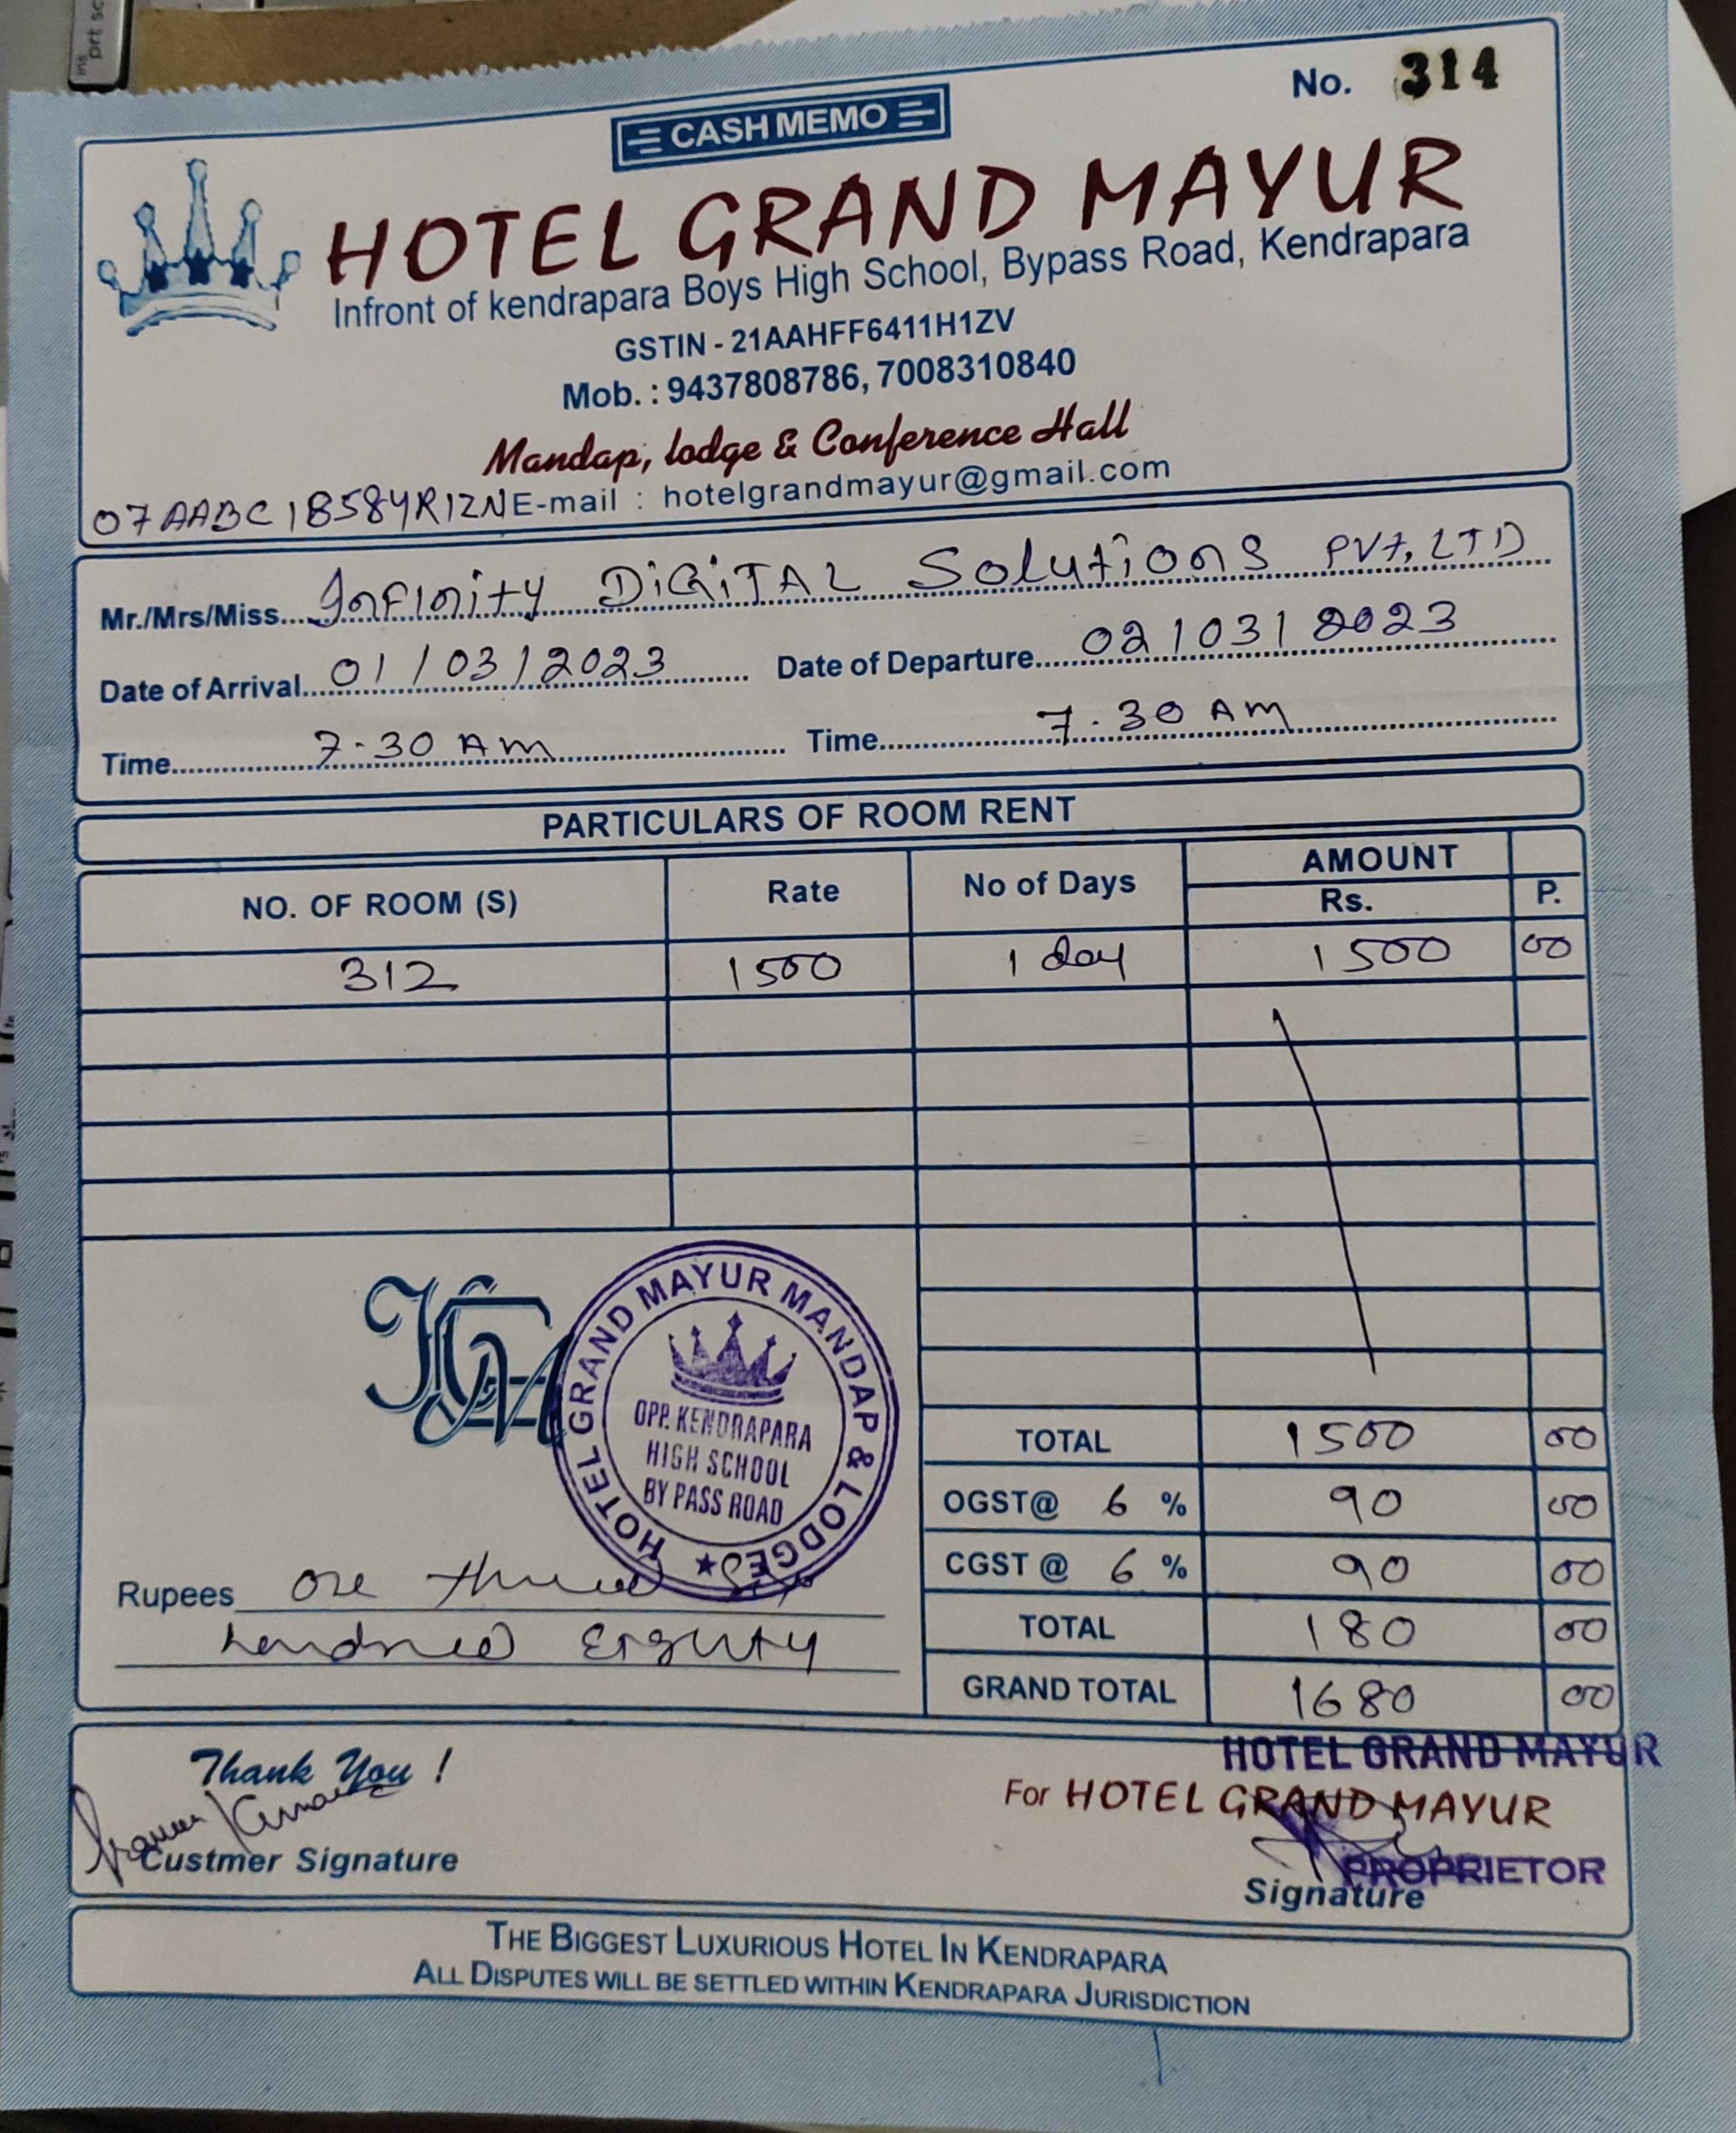 No. 314
CASH MEMO
HOTEL GRAND MAYUR
Infront of kendrapara Boys High School, Bypass Road, Kendrapara
GSTIN - 21AAHFF6411H1ZV
Mob. : 9437808786, 7008310840
Mandap, lodge & Conference Hall
07AABCI8584R1ZN E-mail : hotelgrandmayur@gmail.com
Mr./Mrs/Miss.... Infinity DiGiTAL Solutions PVT. LTD
Date of Arrival... 01/03/2023 Date of Departure..... 02/03/2023
Time... 7.30 AM Time... 7.30 AM
PARTICULARS OF ROOM RENT
NO. OF ROOM (S) Rate No of Days AMOUNT
Rs. P.
312 1500 1 day 1500 00
TOTAL 1500 00
OGST@ 6 % 90 00
CGST @ 6 % 90 00
TOTAL 180 00
GRAND TOTAL 1680 00
HGM
HOTEL GRAND MAYUR MANDAP & LODGE ★
OPP. KENDRAPARA
HIGH SCHOOL
BY PASS ROAD
Rupees one
HOTEL GRAND MAYUR
Thank You !
For HOTEL GRAND MAYUR
Kumar
Custmer Signature
PROPRIETOR
Signature
THE BIGGEST LUXURIOUS HOTEL IN KENDRAPARA
ALL DISPUTES WILL BE SETTLED WITHIN KENDRAPARA JURISDICTION
ins
prt sc